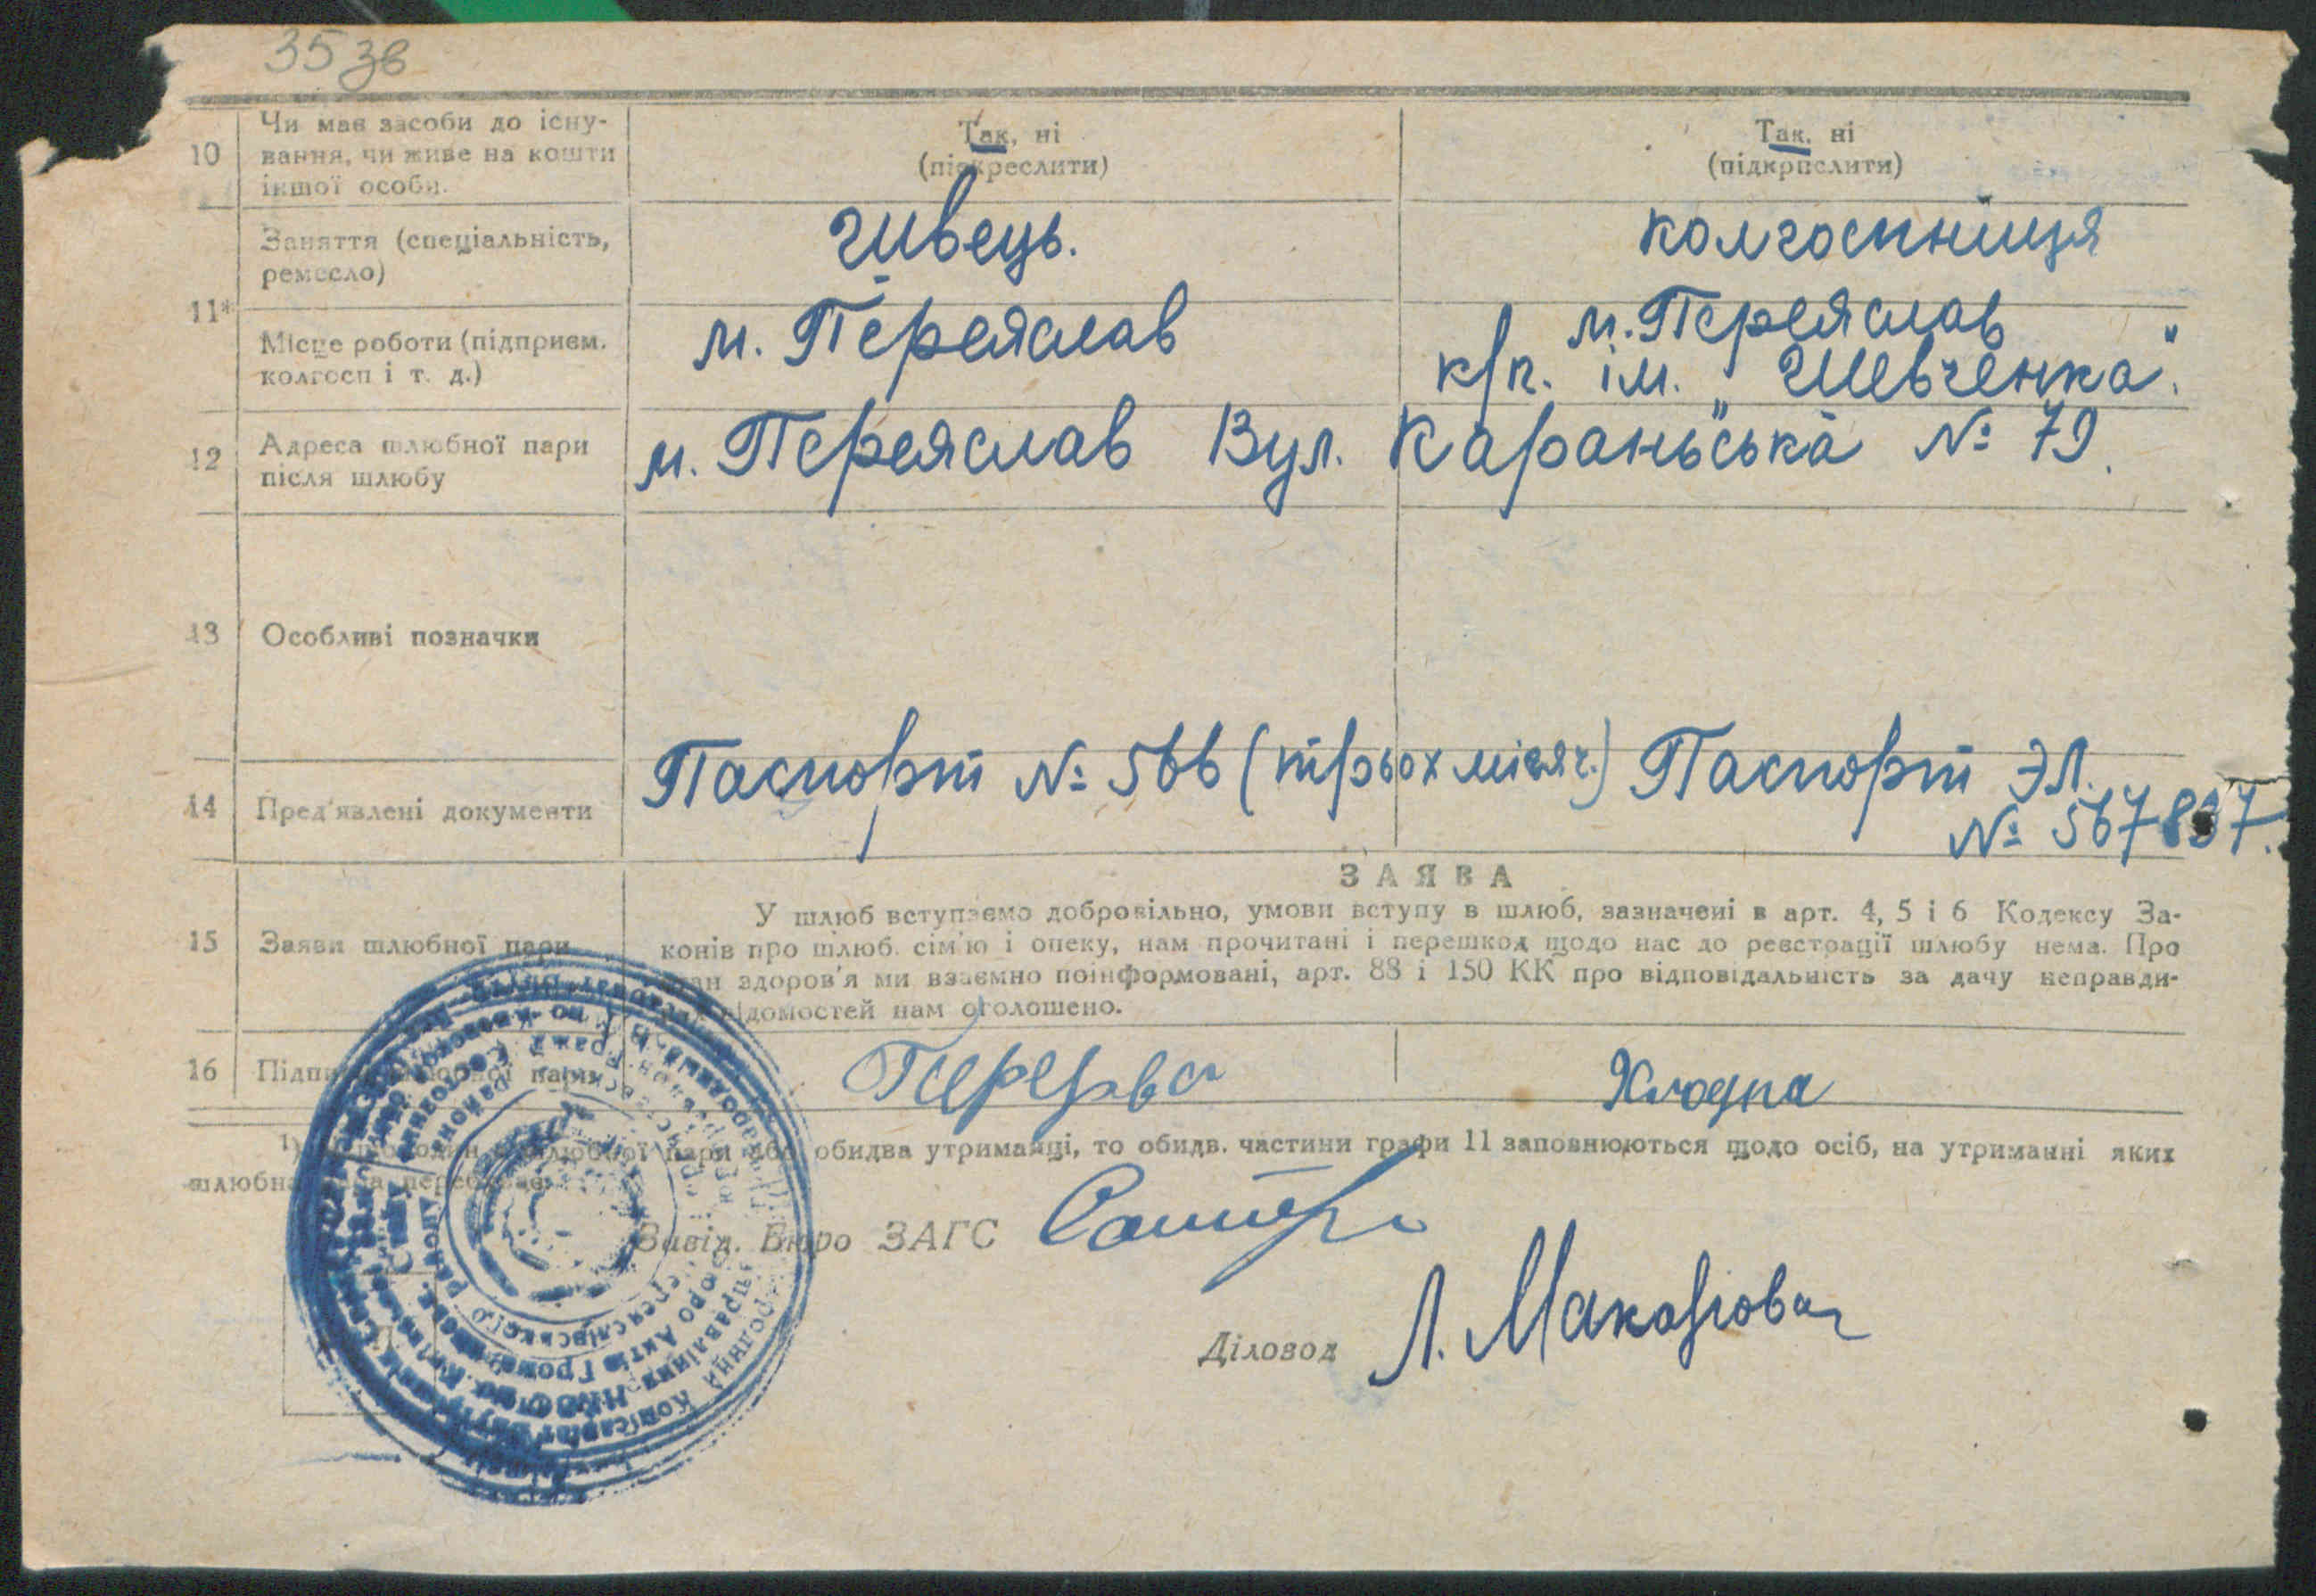 35 зв
10
Чи має засоби до існу-
вання, чи живе на кошти
іншої особи.
Так, ні
(підкреслити)
Так, ні
(підкрпслити)
11*
Заняття (спеціальність,
ремесло)
Швець.
колгоспниця
Місце роботи (підприєм.
колгосп і т. д.)
м. Переяслав
м. Переяслав
к/г. ім. „Шевченка".
12
Адреса шлюбної пари
після шлюбу
м. Переяслав Вул. Караньська № 79.
13
Особливі позначки
14
Пред'явлені документи
Паспорт № 566 (трьох місяч.)
Паспорт ЭЛ.
№ 567837.
ЗАЯВА
15
Заяви шлюбної пари
У шлюб вступаємо добровільно, умови вступу в шлюб, зазначені в арт. 4, 5 і 6 Кодексу За-
конів про шлюб. сім'ю і опеку, нам прочитані і перешкод щодо нас до реєстрації шлюбу нема. Про
стан здоров'я ми взаємно поінформовані, арт. 88 і 150 КК про відповідальність за дачу неправди-
відомостей нам оголошено.
16
Підписи шлюбної пари
Перерва
Холодна
1)
шлюбної пари або обидва утриманці, то обидв. частини графи 11 заповнюються щодо осіб, на утриманні яких
шлюбна пара перебуває.
Завід. Бюро ЗАГС
Діловод Л.